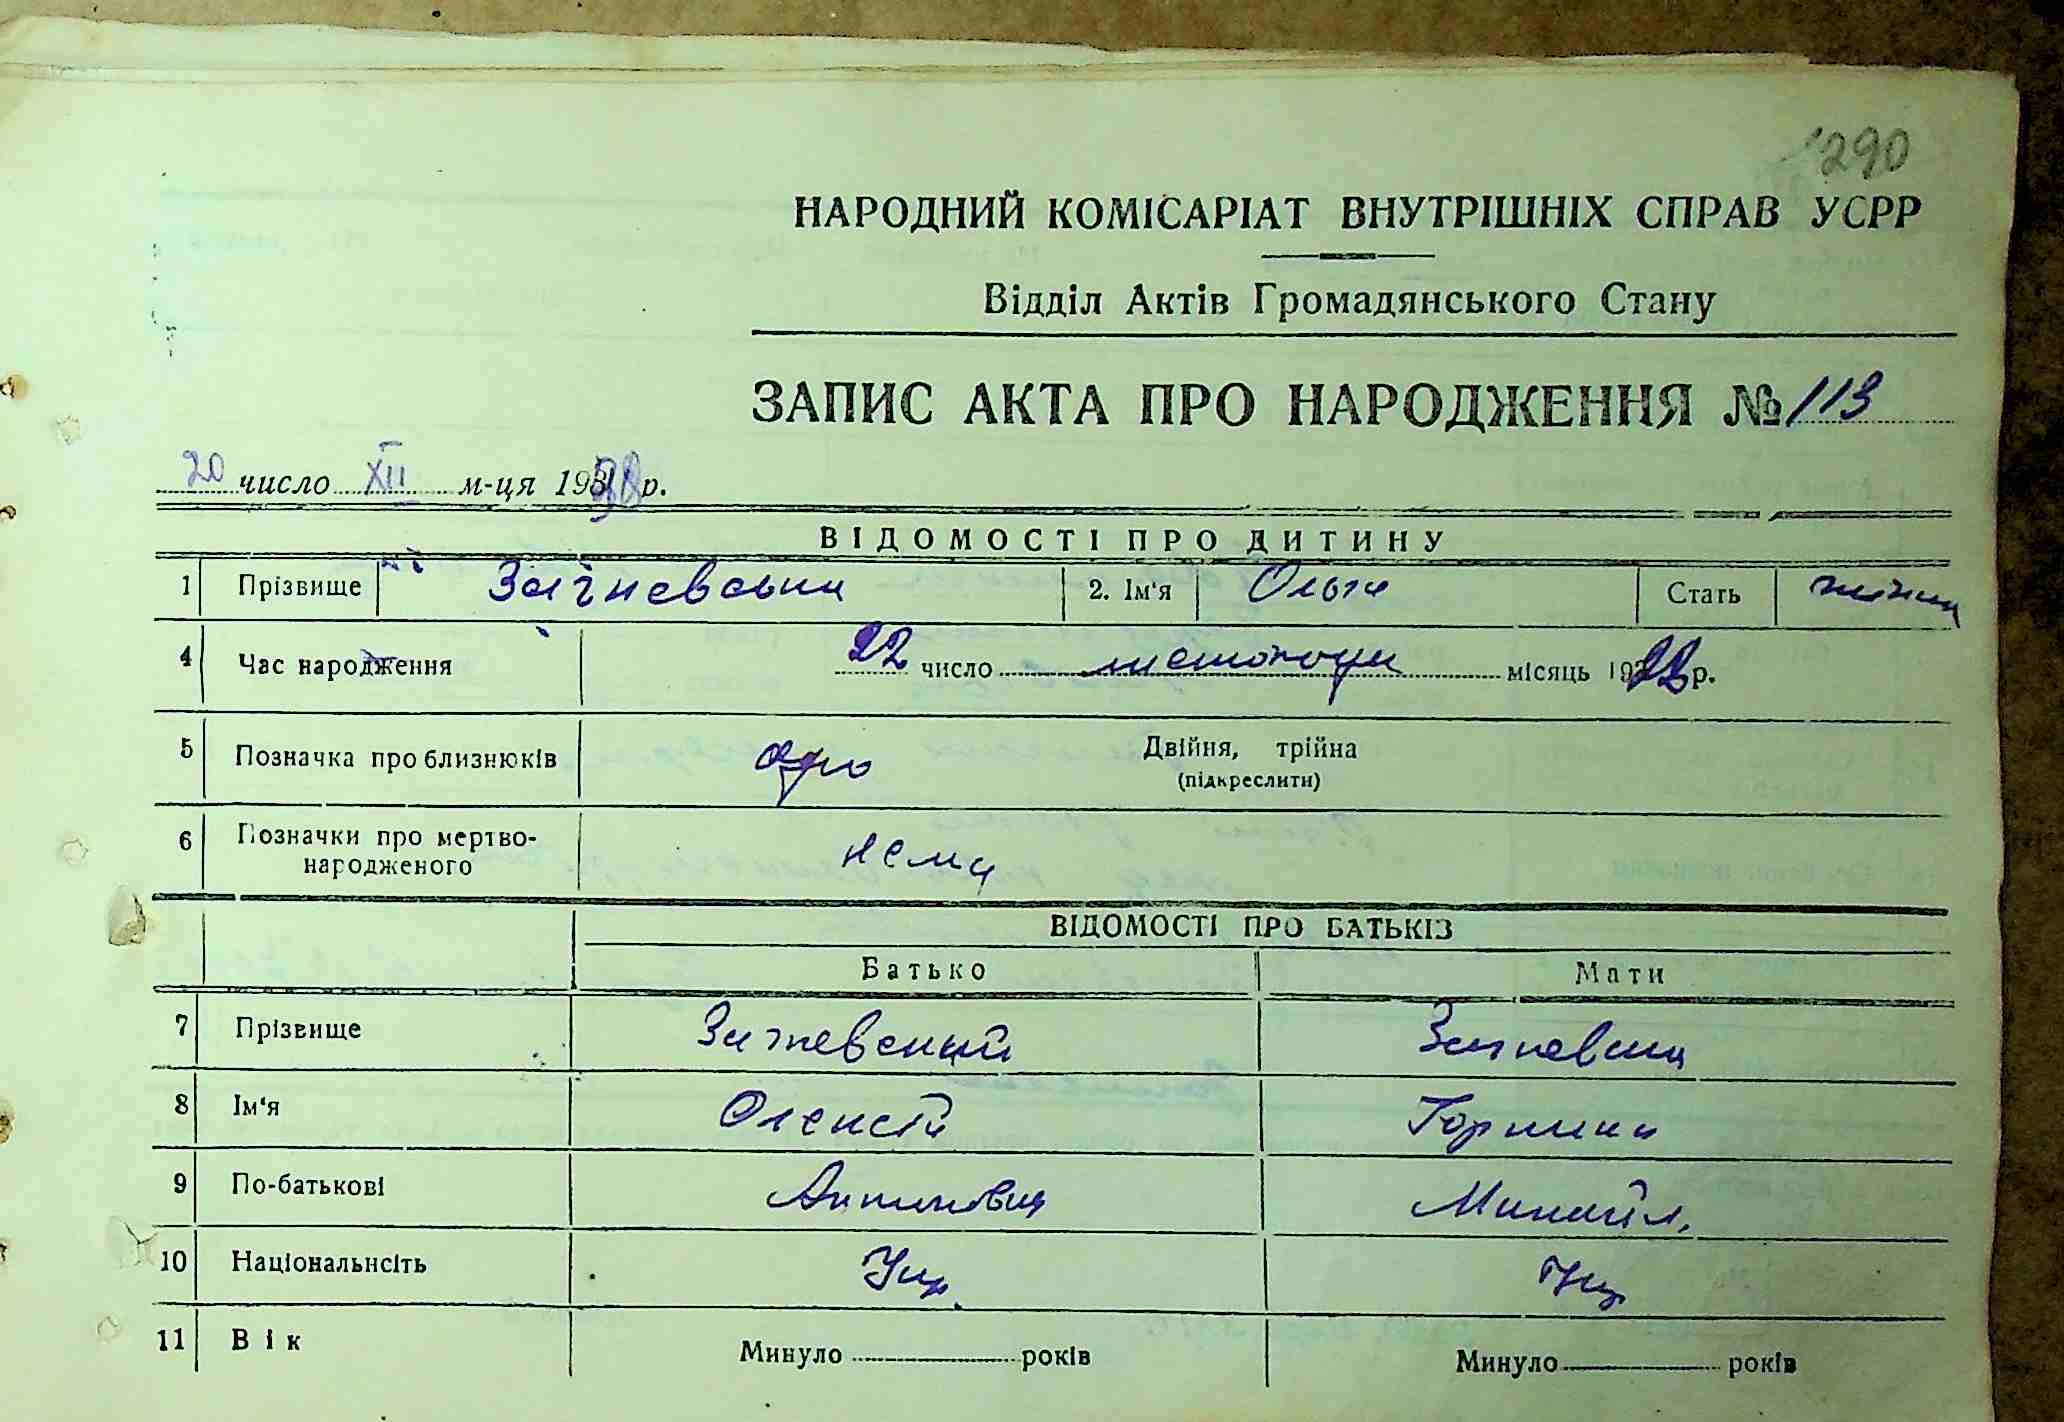 290
НАРОДНИЙ КОМІСАРІАТ ВНУТРІШНІХ СПРАВ УСРР
Відділ Актів Громадянського Стану
ЗАПИС АКТА ПРО НАРОДЖЕННЯ № 113
20 число XII м-ця 193 р.
ВІДОМОСТІ ПРО ДИТИНУ
1 Прізвище 2. Ім'я Ольга Стать
4 Час народження 22 число листопада місяць 19 р.
5 Позначка про близнюків одно Двійня, трійна
(підкреслити)
6 Позначки про мертво-
народженого нема
ВІДОМОСТІ ПРО БАТЬКІВ
Батько Мати
7 Прізвище
8 Ім'я Олексій Горпина
9 По-батькові Антонович Михайл.
10 Національнсіть Укр. Укр
11 Вік Минуло років Минуло років